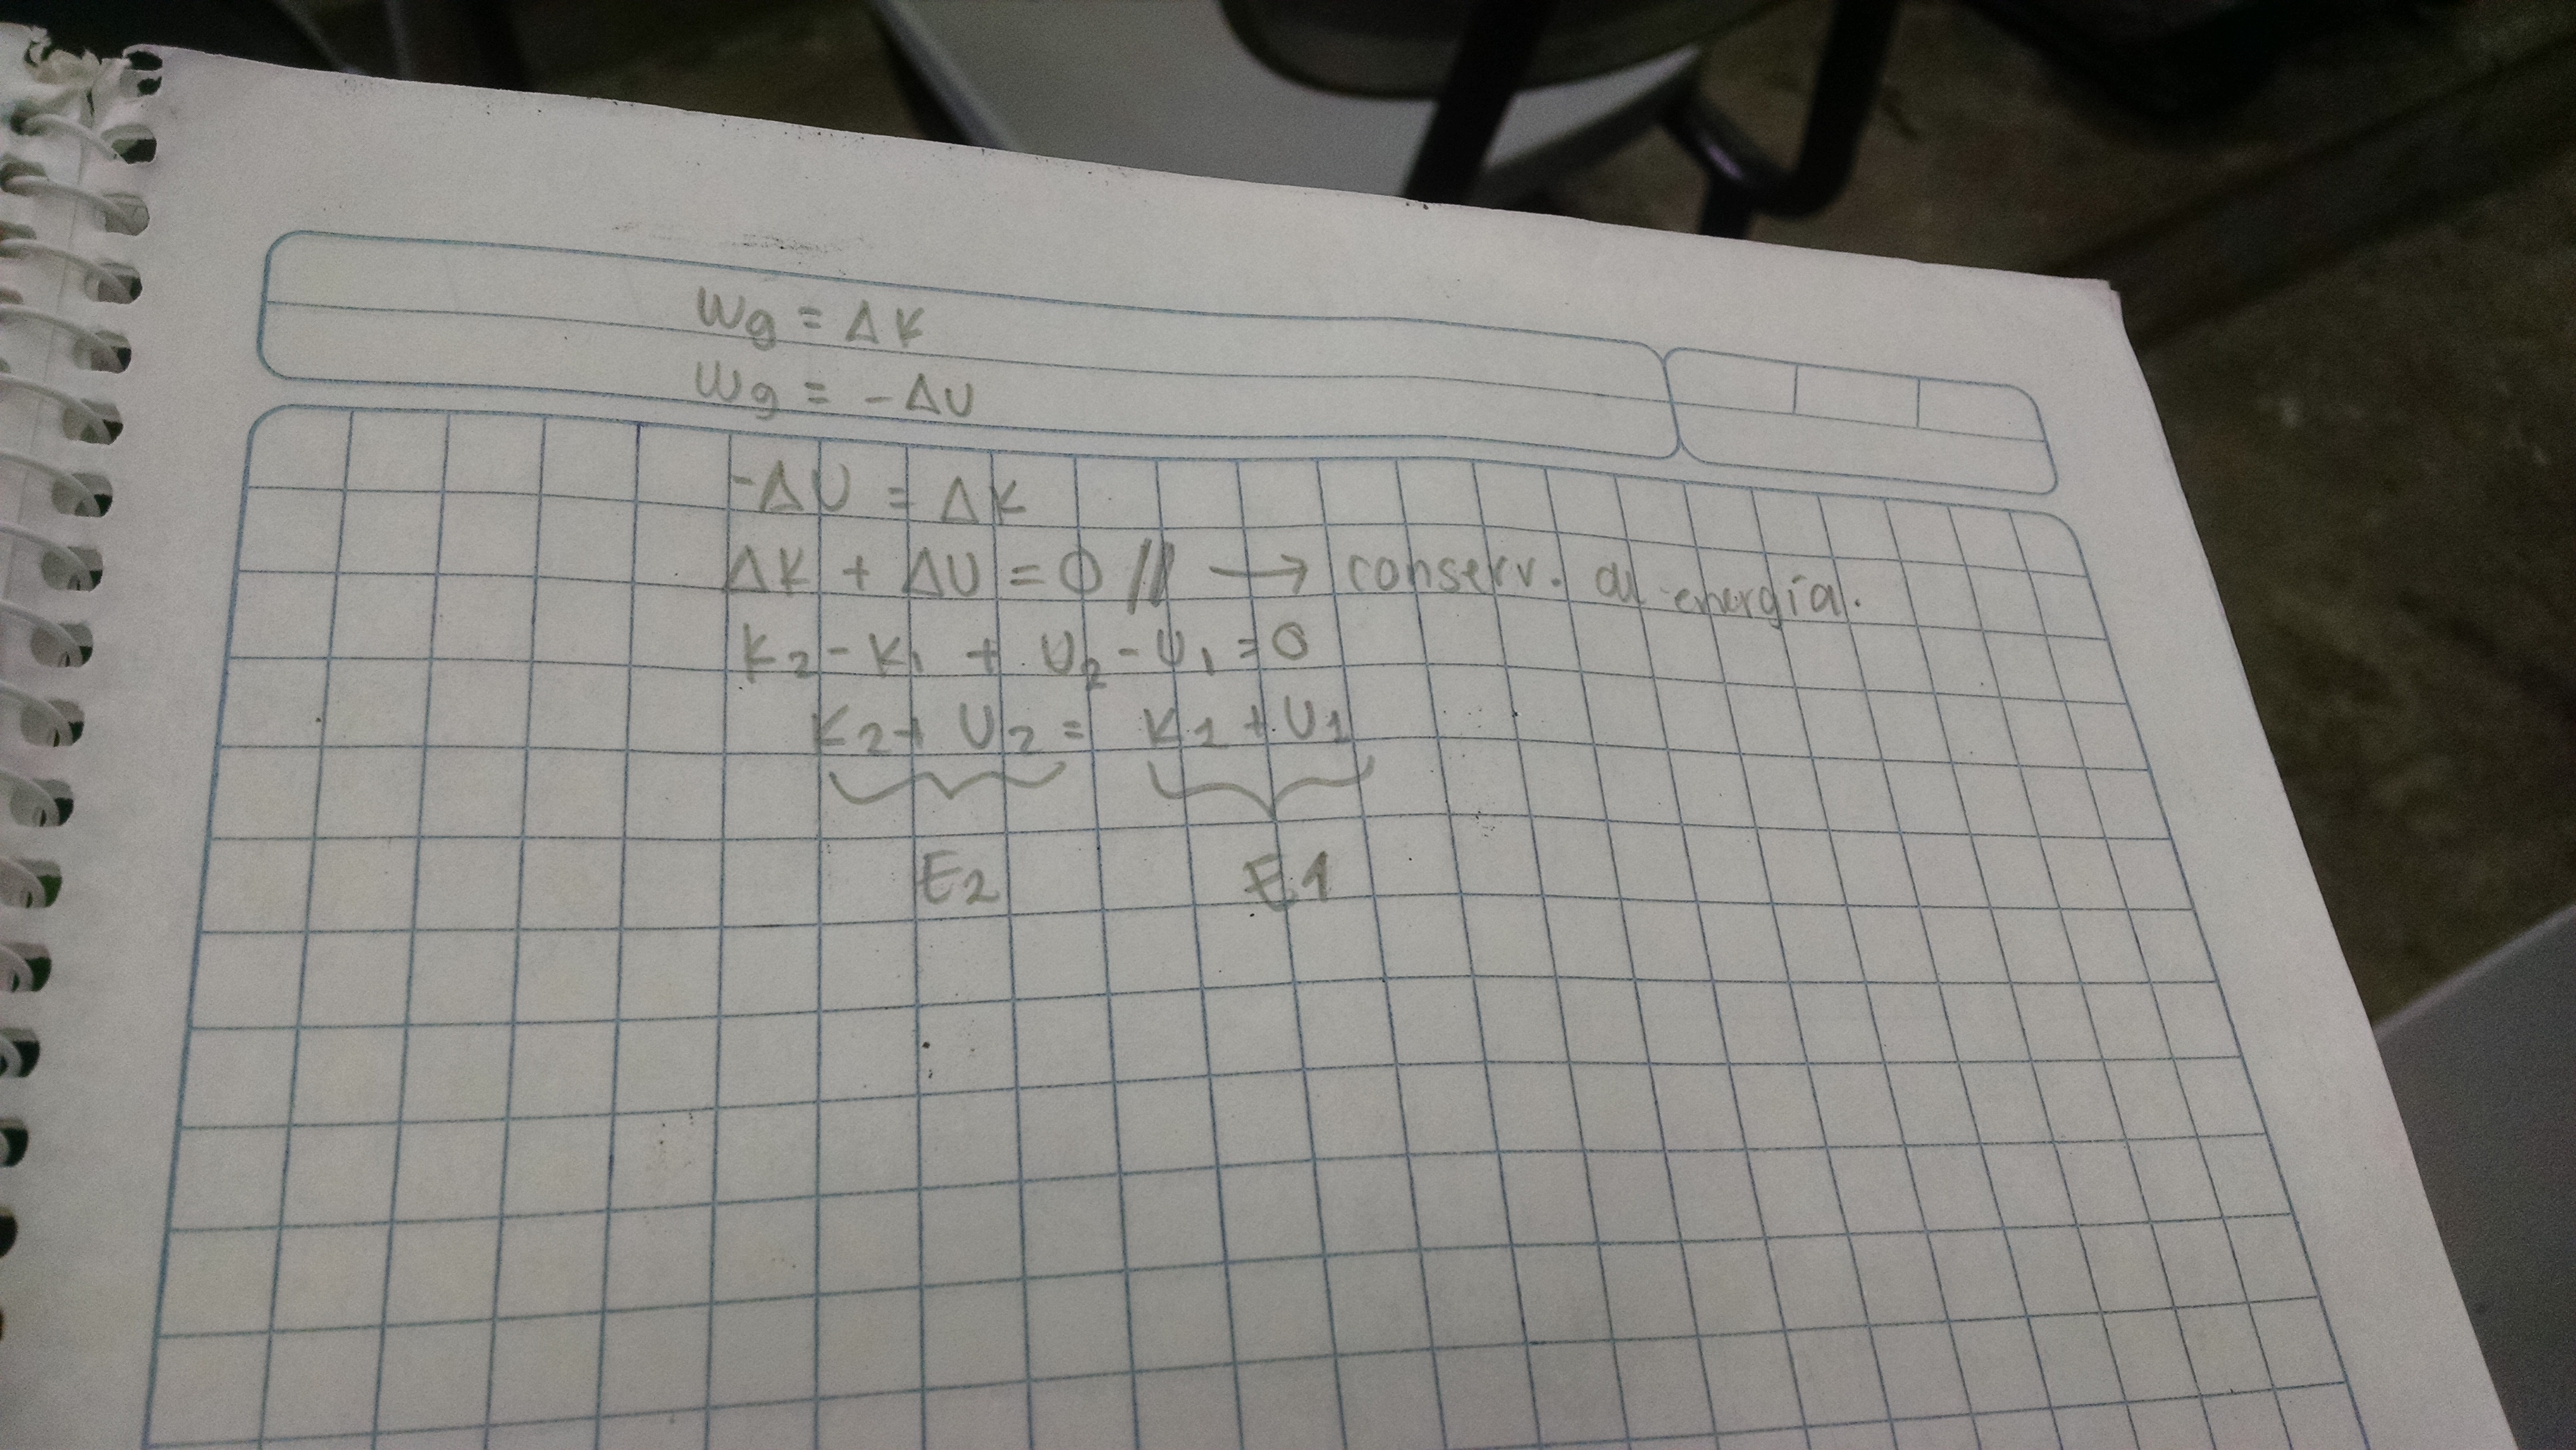 Wg = ΔK
Wg = -ΔU
-ΔU = ΔK
ΔK + ΔU = 0 // → conserv. de energía.
K2 - K1 + U2 - U1 = 0
K2 + U2 = K1 + U1
E2 E1